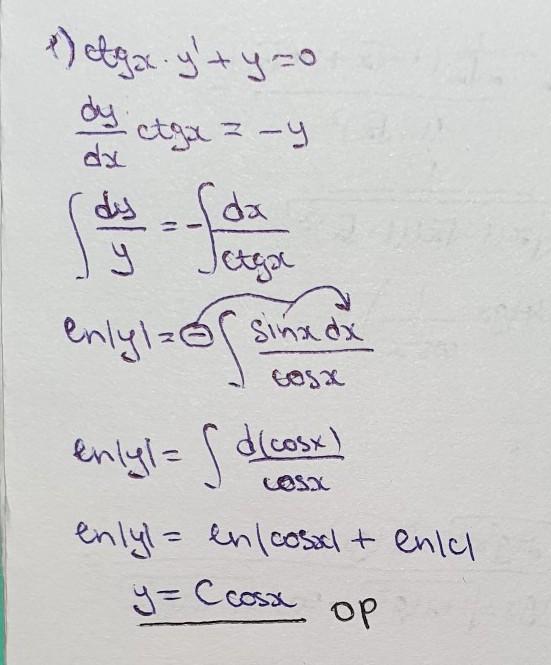 1) ctgx · y' + y = 0
dy/dx ctgx = -y
∫ dy/y = -∫ dx/ctgx
ln|y| = ⊖ ∫ sinx dx/cosx
ln|y| = ∫ d(cosx)/cosx
ln|y| = ln|cosx| + ln|c|
y = C cosx OP